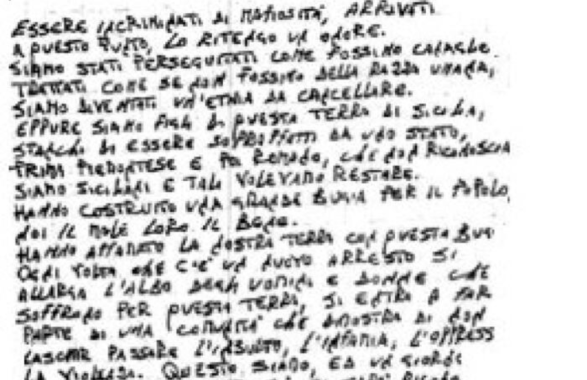 ESSERE INCRIMINATI DI MAFIOSITÀ, ARRIVATI
A QUESTO PUNTO, LO RITENGO UN ONORE.
SIAMO STATI PERSEGUITATI COME FOSSIMO CANAGLIE
TRATTATI COME SE NON FOSSIMO DELLA RAZZA UMANA,
SIAMO DIVENTATI UN'ETNIA DA CANCELLARE.
EPPURE SIAMO FIGLI DI QUESTA TERRA DI SICILIA,
STANCHI DI ESSERE SOPRAFFATTI DA UNO STATO,
PRIMA PIEMONTESE E POI ROMANO, CHE NON RICONOSCIA
SIAMO SICILIANI E TALI VOLEVAMO RESTARE.
HANNO COSTRUITO UNA GRANDE BUGIA PER IL POPOLO,
NOI IL MALE LORO IL BENE.
HANNO AFFAMATO LA NOSTRA TERRA CON QUESTA BUGI
OGNI VOLTA CHE C'È UN NUOVO ARRESTO SI
ALLARGA L'ALBO DEGLI UOMINI E DONNE CHE
SOFFRONO PER QUESTA TERRA, SI ENTRA A FAR
PARTE DI UNA COMUNITÀ CHE DIMOSTRA DI NON
LASCIAR PASSARE L'INSULTO, L'INFAMIA, L'OPPRESS
LA VIOLENZA. QUESTO SIAMO, ED UN GIORNO